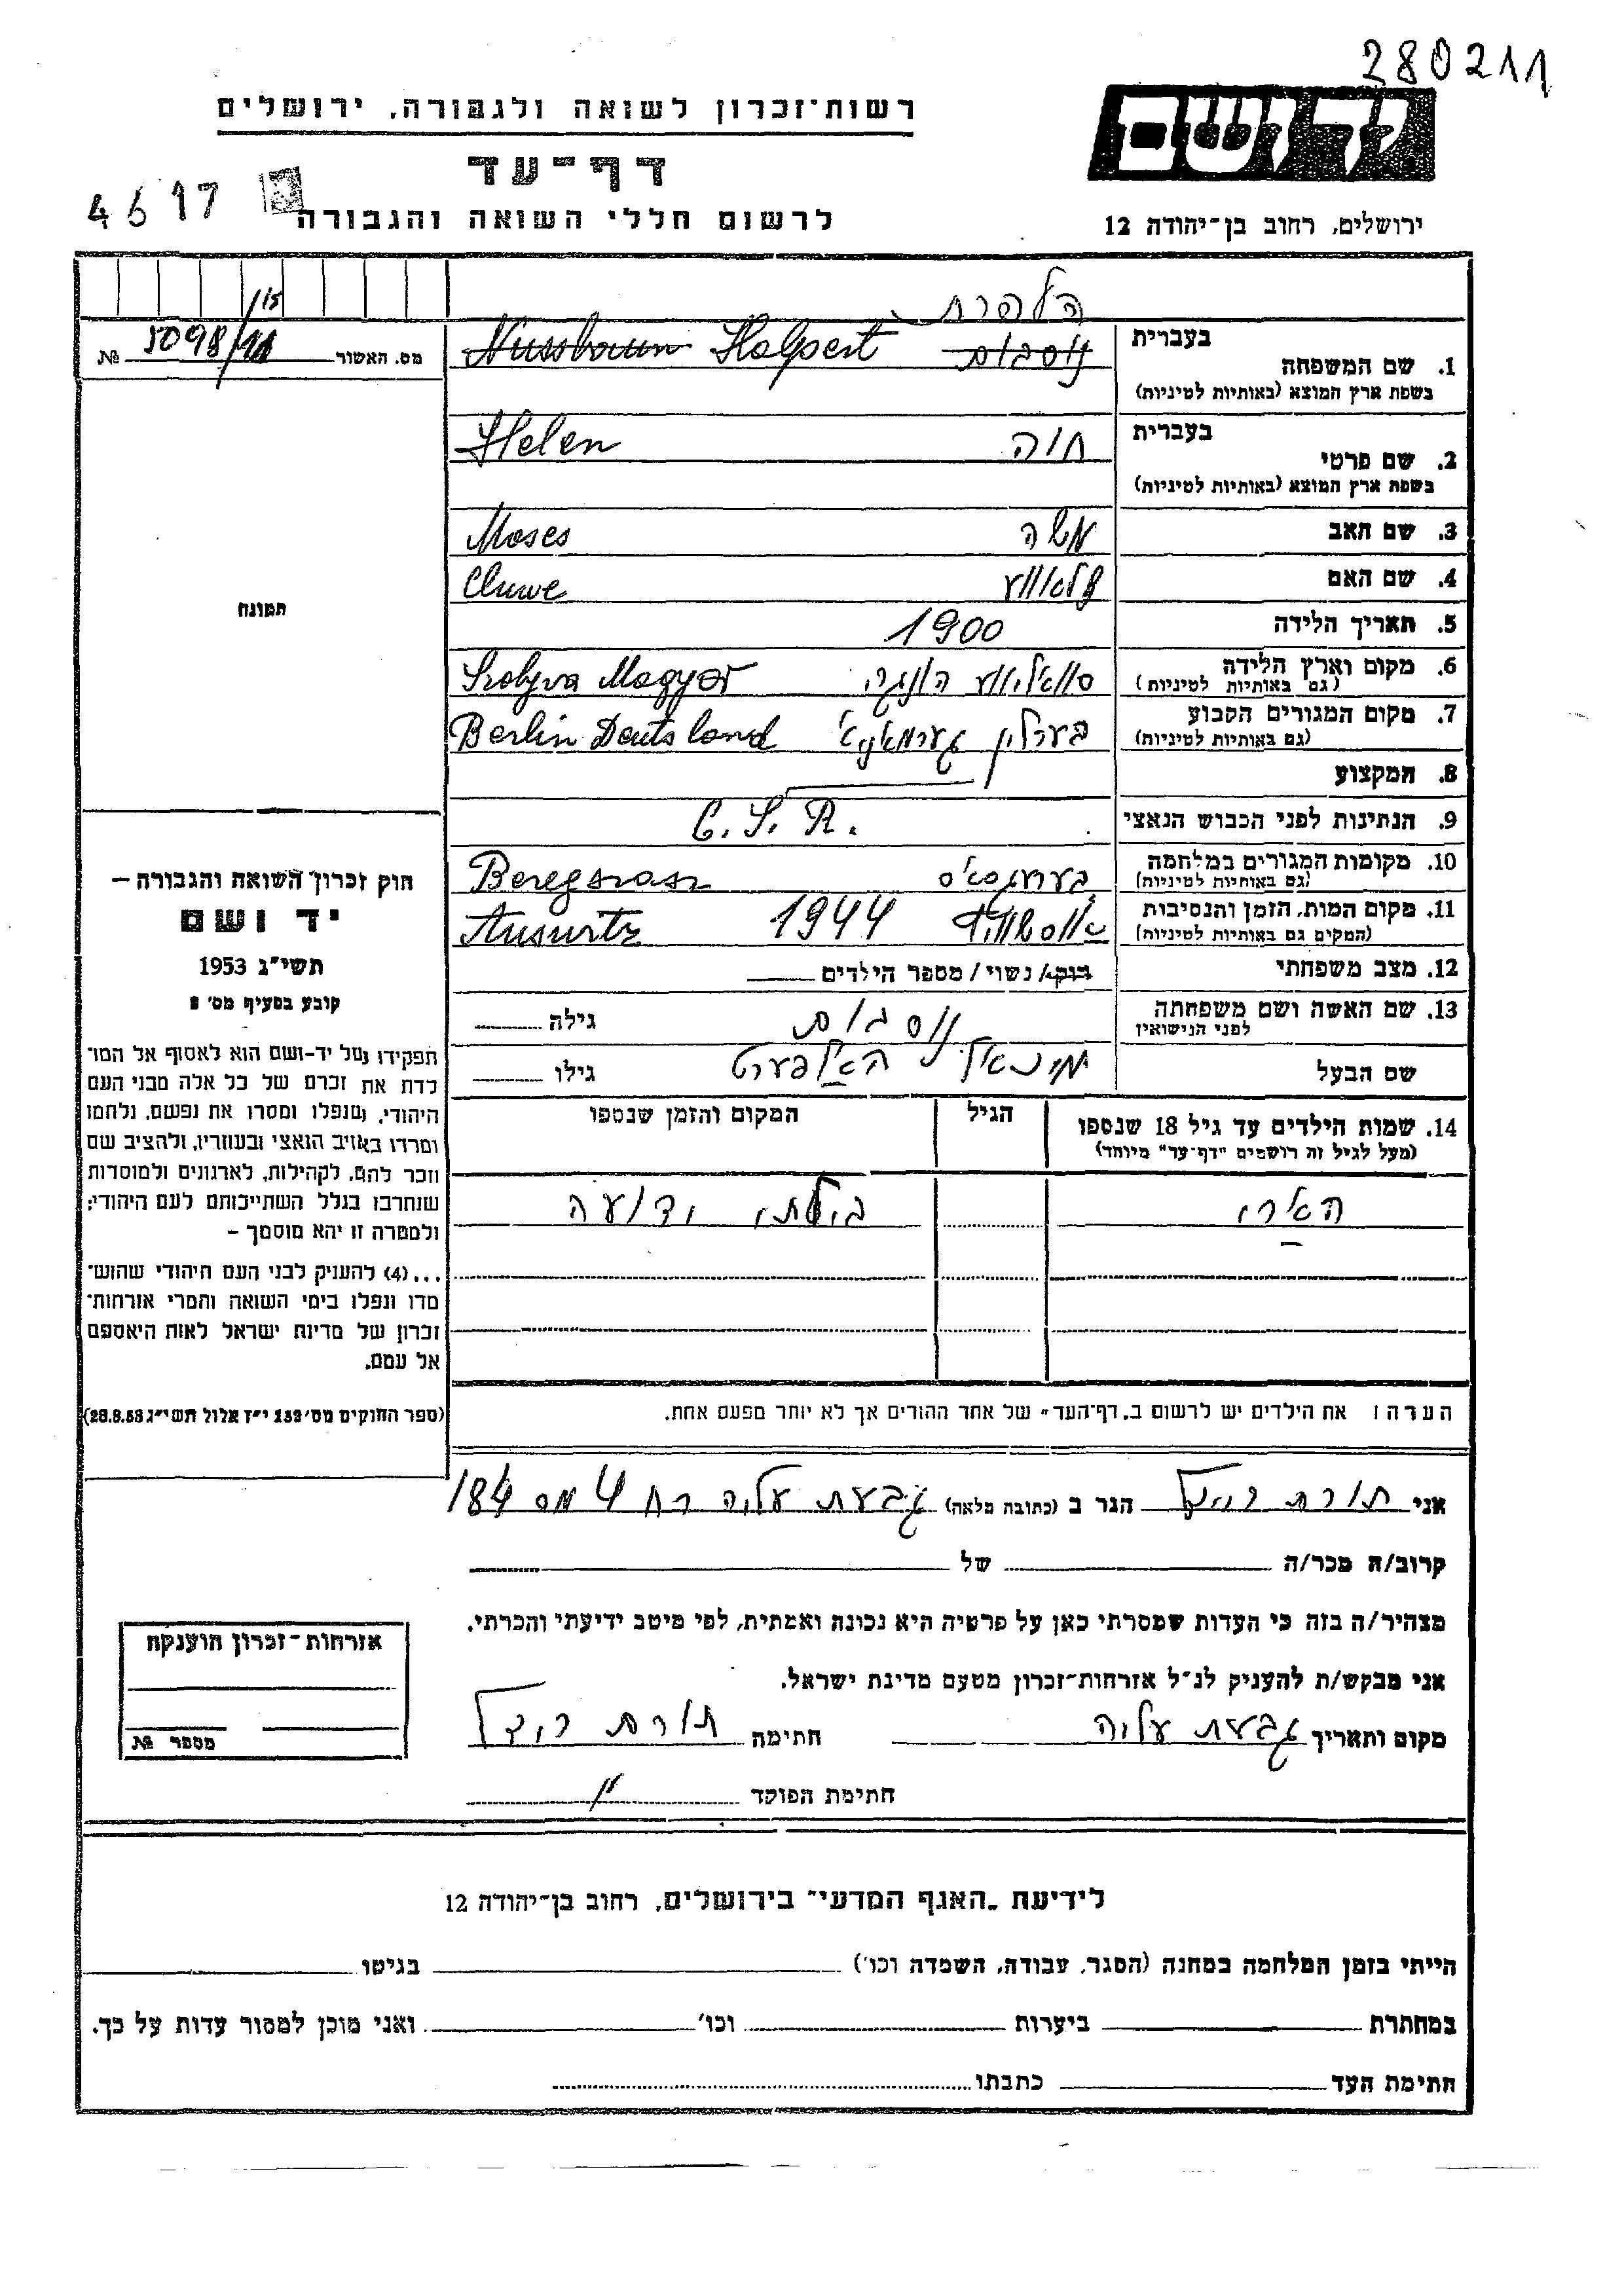 280211
יד ושם
רשות־זכרון לשואה ולגבורה, ירושלים
דף־עד
4617
לרשום חללי השואה והגבורה
ירושלים, רחוב בן־יהודה 12
הלפרט
מס. האשור 5098/ №
/15
בעברית
1. שם המשפחה נוסבוים Nussbaum Halpert
בשפת ארץ המוצא (באותיות לטיניות)
בעברית
2. שם פרטי חוה Helen
בשפת ארץ המוצא (באותיות לטיניות)
3. שם האב משה Moses
4. שם האם
5. תאריך הלידה 1900
6. מקום וארץ הלידה Szolyva Magyar
(גם באותיות לטיניות)
7. מקום המגורים הקבוע בערלין גערמאניא Berlin Deutsland
(גם באותיות לטיניות)
8. המקצוע
9. הנתינות לפני הכבוש הנאצי C. S. R.
10. מקומות המגורים במלחמה בערעגסאס Beregszasz
(גם באותיות לטיניות)
11. מקום המות, הזמן והנסיבות 1944 Ausuritz
(המקום גם באותיות לטיניות)
12. מצב משפחתי רווק/ נשוי/ מספר הילדים
13. שם האשה ושם משפחתה נוסבוים גילה
לפני הנישואין
שם הבעל מיכאל האלפערט גילו
14. שמות הילדים עד גיל 18 שנספו הגיל המקום והזמן שנספו
(מעל לגיל זה רושמים "דף־עד" מיוחד)
הארי בילתי ידועה
הערה: את הילדים יש לרשום ב„דף־העד" של אחד ההורים אך לא יותר מפעם אחת.
תמונה
חוק זכרון השואה והגבורה –
יד ושם
תשי"ג 1953
קובע בסעיף מס' 2
תפקידו של יד-ושם הוא לאסוף אל המו־
לדת את זכרם של כל אלה מבני העם
היהודי, שנפלו ומסרו את נפשם, נלחמו
ומרדו באויב הנאצי ובעוזריו, ולהציב שם
וזכר להם, לקהילות, לארגונים ולמוסדות
שנחרבו בגלל השתייכותם לעם היהודי;
ולמטרה זו יהא מוסמך –
...(4) להעניק לבני העם היהודי שהוש־
מדו ונפלו בימי השואה והמרי אזרחות־
זכרון של מדינת ישראל לאות היאספם
אל עמם.
(ספר החוקים מס' 132 י"ז אלול תשי"ג 28.8.53)
אני הגר ב (כתובת מלאה) גבעת עליה רח 4 מס 184
קרוב/ה מכר/ה של
מצהיר/ה בזה כי העדות שמסרתי כאן על פרטיה היא נכונה ואמתית, לפי מיטב ידיעתי והכרתי.
אני מבקש/ת להעניק לנ"ל אזרחות־זכרון מטעם מדינת ישראל.
מקום ותאריך גבעת עליה חתימה
חתימת הפוקד
אזרחות־זכרון הוענקה
מספר №
לידיעת „האגף המדעי" בירושלים, רחוב בן־יהודה 12
הייתי בזמן המלחמה במחנה (הסגר, עבודה, השמדה וכו') בגיטו
במחתרת ביערות וכו' ואני מוכן למסור עדות על כך.
חתימת העד כתבתו